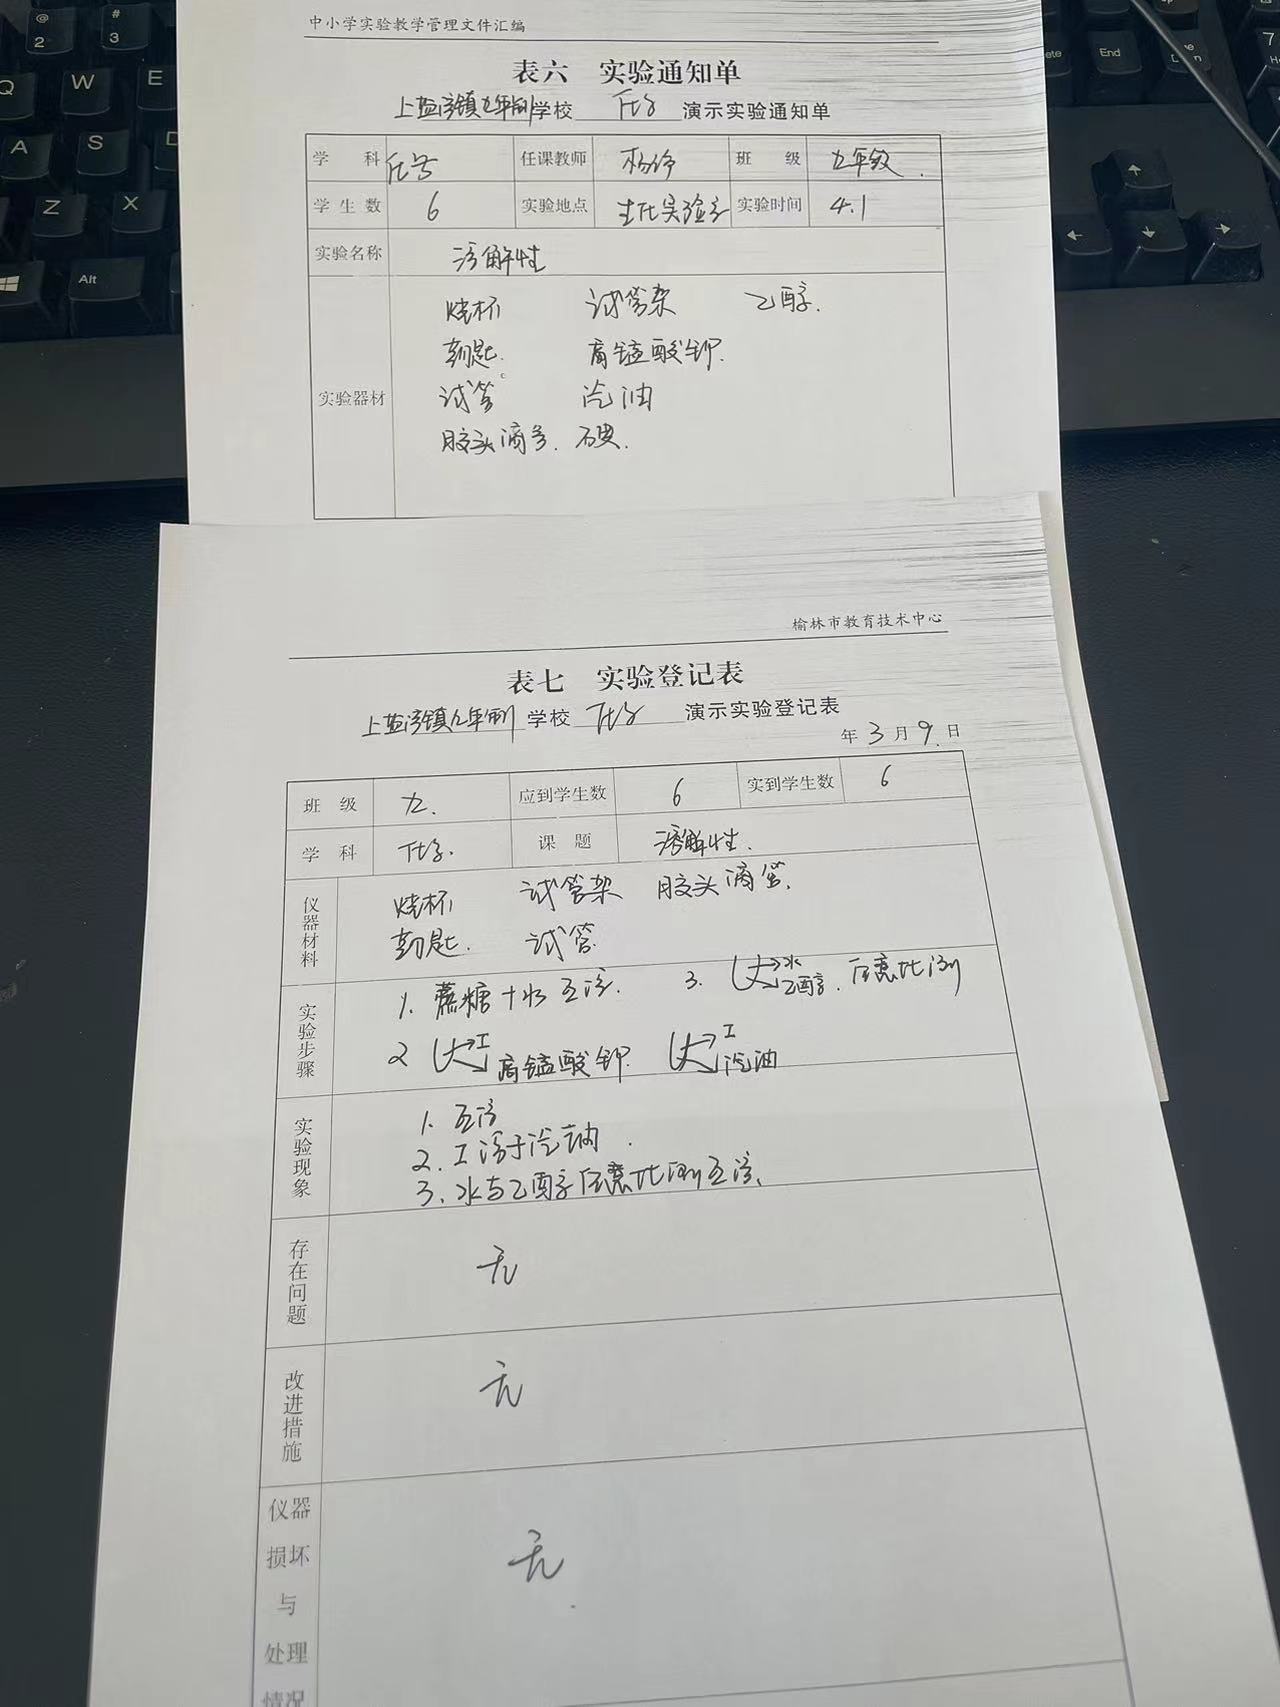 中小学实验教学管理文件汇编
表六 实验通知单
上盐湾镇九年制学校 化学 演示实验通知单
学 科 化学 任课教师 班 级 九年级.
学生数 6 实验地点 生化实验室 实验时间 4.1
实验名称 溶解性
烧杯 试管架 乙醇.
药匙. 高锰酸钾.
实验器材 试管 汽油
胶头滴管. 碘.
榆林市教育技术中心
表七 实验登记表
上盐湾镇九年制学校 化学 演示实验登记表
年 3 月 9. 日
班 级 九. 应到学生数 6 实到学生数 6
学 科 化学. 课 题 溶解性.
仪器材料 烧杯 试管架 胶头滴管.
药匙. 试管.
实验步骤 1. 蔗糖+水 互溶. 3. 水 乙醇. 任意比例
2 I 高锰酸钾 I 汽油
实验现象 1. 互溶
2. I 溶于汽油.
3. 水与乙醇任意比例互溶.
存在问题 无
改进措施 无
仪器
损坏
与 无
处理
情况